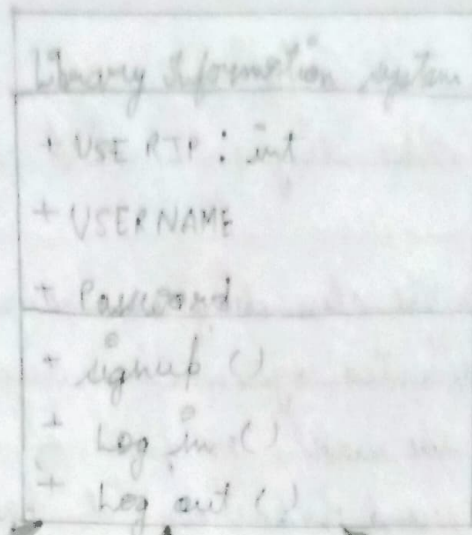 Library Information system
+ USERID : int
+ USERNAME
+ Password
+ signup ()
+ Log in ()
+ Log out ()